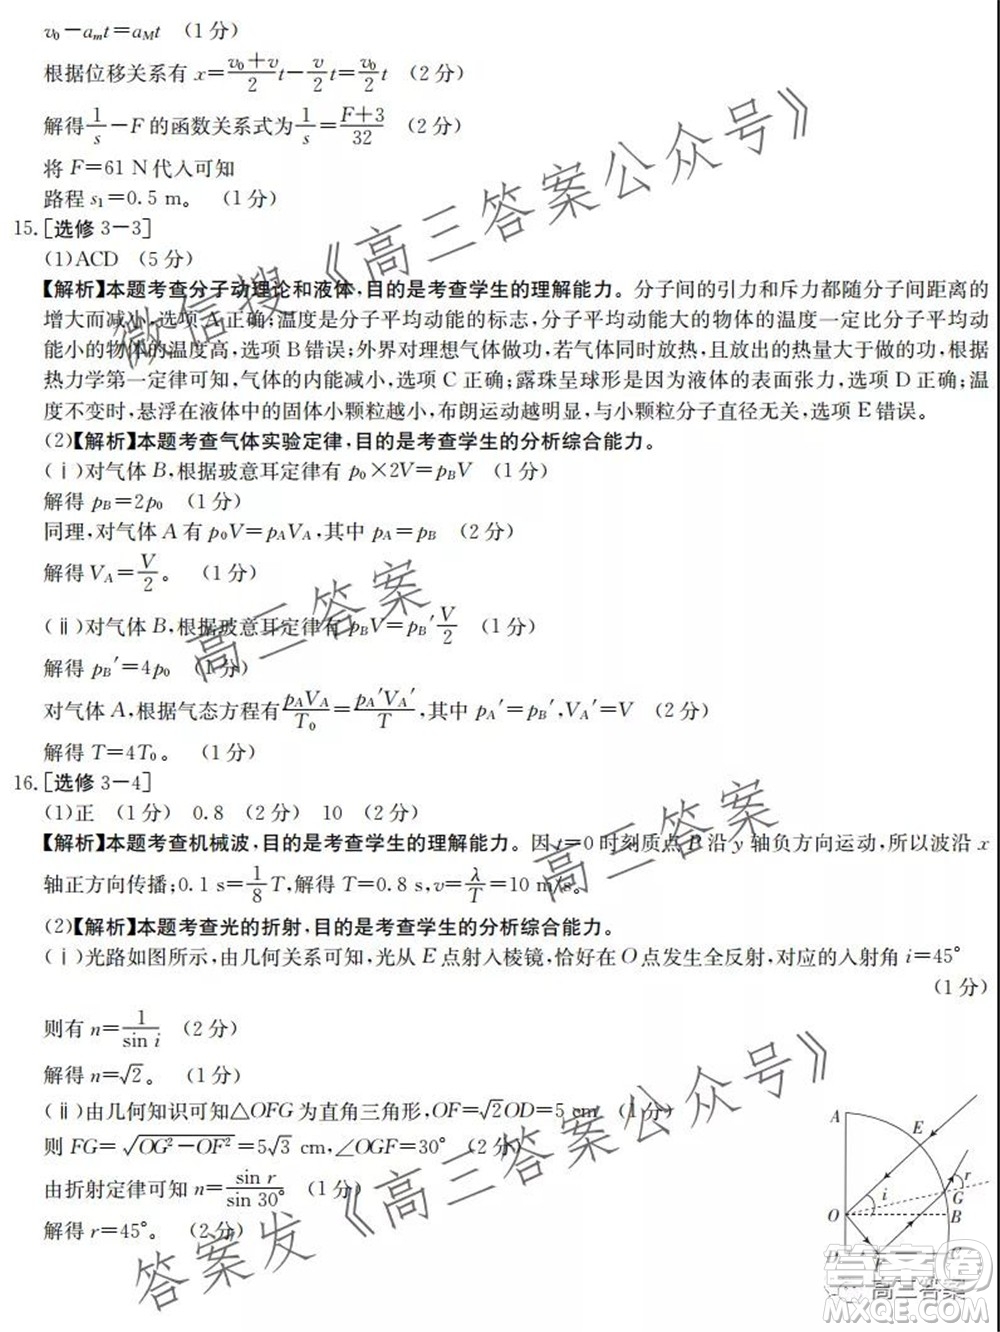 v₀－aₘt＝a_Mt　(1分)
根据位移关系有 x＝(v₀＋v)/2 t－v/2 t＝v₀/2 t　(2分)
解得 1/s－F 的函数关系式为 1/s＝(F＋3)/32　(2分)
将 F＝61 N代入可知
路程 s₁＝0.5 m。　(1分)
15.[选修3－3]
(1)ACD　(5分)
【解析】本题考查分子动理论和液体,目的是考查学生的理解能力。分子间的引力和斥力都随分子间距离的
增大而减小,选项A正确;温度是分子平均动能的标志,分子平均动能大的物体的温度一定比分子平均动
能小的物体的温度高,选项B错误;外界对理想气体做功,若气体同时放热,且放出的热量大于做的功,根据
热力学第一定律可知,气体的内能减小,选项C正确;露珠呈球形是因为液体的表面张力,选项D正确;温
度不变时,悬浮在液体中的固体小颗粒越小,布朗运动越明显,与小颗粒分子直径无关,选项E错误。
(2)【解析】本题考查气体实验定律,目的是考查学生的分析综合能力。
(ⅰ)对气体B,根据玻意耳定律有 p₀×2V＝p_BV　(1分)
解得 p_B＝2p₀　(1分)
同理,对气体A有 p₀V＝p_AV_A,其中 p_A＝p_B　(2分)
解得 V_A＝V/2。　(1分)
(ⅱ)对气体B,根据玻意耳定律有 p_BV＝p_B′V/2　(1分)
解得 p_B′＝4p₀　(1分)
对气体A,根据气态方程有 p_AV_A/T₀＝p_A′V_A′/T,其中 p_A′＝p_B′,V_A′＝V　(2分)
解得 T＝4T₀。　(1分)
16.[选修3－4]
(1)正　(1分)　0.8　(2分)　10　(2分)
【解析】本题考查机械波,目的是考查学生的理解能力。因 t＝0 时刻质点B沿 y 轴负方向运动,所以波沿 x
轴正方向传播;0.1 s＝1/8 T,解得 T＝0.8 s,v＝λ/T＝10 m/s。
(2)【解析】本题考查光的折射,目的是考查学生的分析综合能力。
(ⅰ)光路如图所示,由几何关系可知,光从E点射入棱镜,恰好在O点发生全反射,对应的入射角 i＝45°
(1分)
则有 n＝1/sin i　(2分)
解得 n＝√2。　(1分)
(ⅱ)由几何知识可知△OFG为直角三角形,OF＝√2OD＝5 cm　(1分)
则 FG＝√(OG²－OF²)＝5√3 cm,∠OGF＝30°　(2分)
由折射定律可知 n＝sin r/sin 30°　(1分)
解得 r＝45°。　(2分)
A
E
r
i
G
O
B
D
F
C
微信搜《高三答案公众号》
高三答案
高三答案
答案发《高三答案公众号》
高三答案
答案圈
MXQE.COM